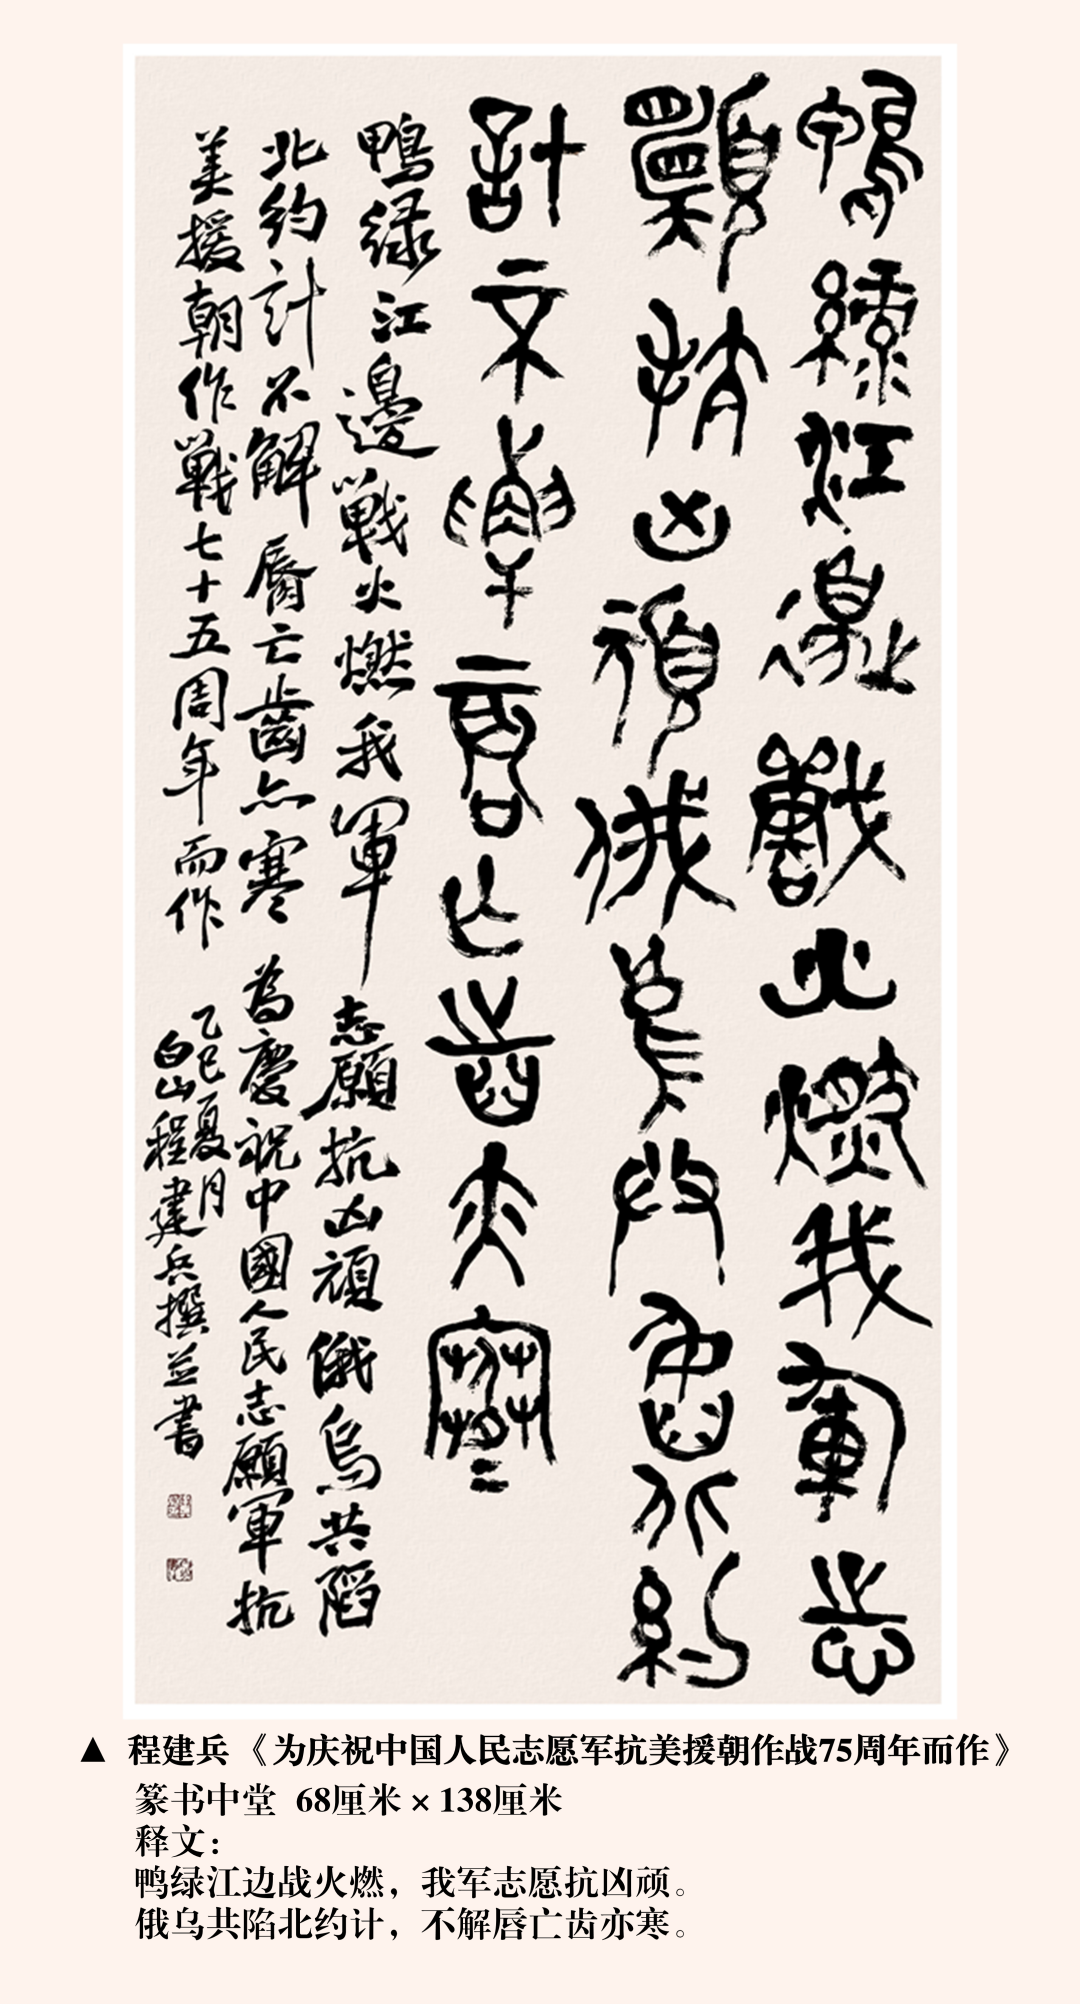 鴨綠江邊戰火燃我軍志
願抗凶頑俄烏共陷北約
計不解唇亡齒亦寒
鴨绿江邊戰火燃我軍志願抗凶頑俄烏共陷
北約計不解唇亡齒亦寒為慶祝中國人民志願軍抗
美援朝作戰七十五周年而作
乙巳夏月
白山程建兵撰並書
▲ 程建兵《为庆祝中国人民志愿军抗美援朝作战75周年而作》
篆书中堂 68厘米 × 138厘米
释文：
鸭绿江边战火燃，我军志愿抗凶顽。
俄乌共陷北约计，不解唇亡齿亦寒。